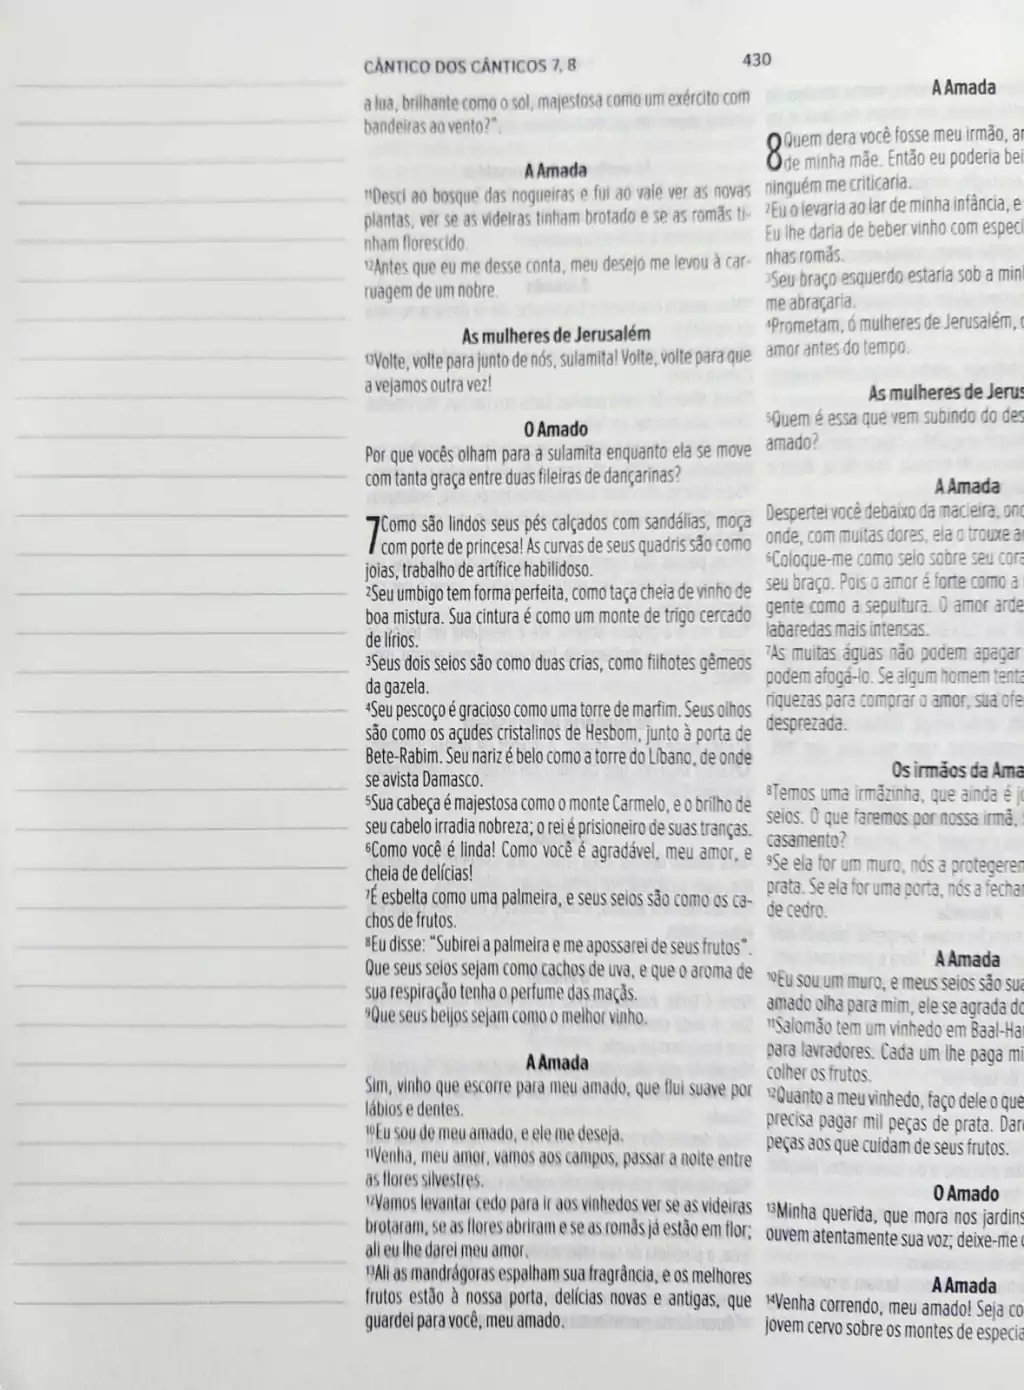 CÂNTICO DOS CÂNTICOS 7, 8
430
a lua, brilhante como o sol, majestosa como um exército com
bandeiras ao vento?".
A Amada
¹¹Desci ao bosque das nogueiras e fui ao vale ver as novas
plantas, ver se as videiras tinham brotado e se as romãs ti-
nham florescido.
¹²Antes que eu me desse conta, meu desejo me levou à car-
ruagem de um nobre.
As mulheres de Jerusalém
¹³Volte, volte para junto de nós, sulamita! Volte, volte para que
a vejamos outra vez!
O Amado
Por que vocês olham para a sulamita enquanto ela se move
com tanta graça entre duas fileiras de dançarinas?
7 Como são lindos seus pés calçados com sandálias, moça
com porte de princesa! As curvas de seus quadris são como
joias, trabalho de artífice habilidoso.
²Seu umbigo tem forma perfeita, como taça cheia de vinho de
boa mistura. Sua cintura é como um monte de trigo cercado
de lírios.
³Seus dois seios são como duas crias, como filhotes gêmeos
da gazela.
⁴Seu pescoço é gracioso como uma torre de marfim. Seus olhos
são como os açudes cristalinos de Hesbom, junto à porta de
Bete-Rabim. Seu nariz é belo como a torre do Líbano, de onde
se avista Damasco.
⁵Sua cabeça é majestosa como o monte Carmelo, e o brilho de
seu cabelo irradia nobreza; o rei é prisioneiro de suas tranças.
⁶Como você é linda! Como você é agradável, meu amor, e
cheia de delícias!
⁷É esbelta como uma palmeira, e seus seios são como os ca-
chos de frutos.
⁸Eu disse: "Subirei a palmeira e me apossarei de seus frutos".
Que seus seios sejam como cachos de uva, e que o aroma de
sua respiração tenha o perfume das maçãs.
⁹Que seus beijos sejam como o melhor vinho.
A Amada
Sim, vinho que escorre para meu amado, que flui suave por
lábios e dentes.
¹⁰Eu sou de meu amado, e ele me deseja.
¹¹Venha, meu amor, vamos aos campos, passar a noite entre
as flores silvestres.
¹²Vamos levantar cedo para ir aos vinhedos ver se as videiras
brotaram, se as flores abriram e se as romãs já estão em flor;
ali eu lhe darei meu amor.
¹³Ali as mandrágoras espalham sua fragrância, e os melhores
frutos estão à nossa porta, delícias novas e antigas, que
guardei para você, meu amado.
A Amada
8 Quem dera você fosse meu irmão,
de minha mãe. Então eu poderia
ninguém me criticaria.
²Eu o levaria ao lar de minha infância, e
Eu lhe daria de beber vinho com
nhas romãs.
³Seu braço esquerdo estaria sob a
me abraçaria.
⁴Prometam, ó mulheres de Jerusalém,
amor antes do tempo.
As mulheres de
⁵Quem é essa que vem subindo do
amado?
A Amada
Despertei você debaixo da macieira,
onde, com muitas dores, ela o trouxe
⁶Coloque-me como selo sobre seu
seu braço. Pois o amor é forte como a
gente como a sepultura. O amor
labaredas mais intensas.
⁷As muitas águas não podem apagar
podem afogá-lo. Se algum homem
riquezas para comprar o amor, sua
desprezada.
Os irmãos da
⁸Temos uma irmãzinha, que ainda é
seios. O que faremos por nossa irmã,
casamento?
⁹Se ela for um muro, nós a
prata. Se ela for uma porta, nós a
de cedro.
A Amada
¹⁰Eu sou um muro, e meus seios são
amado olha para mim, ele se agrada
¹¹Salomão tem um vinhedo em
para lavradores. Cada um lhe paga
colher os frutos.
¹²Quanto a meu vinhedo, faço dele o que
precisa pagar mil peças de prata.
peças aos que cuidam de seus frutos.
O Amado
¹³Minha querida, que mora nos jardins
ouvem atentamente sua voz; deixe-me
A Amada
¹⁴Venha correndo, meu amado! Seja
jovem cervo sobre os montes de